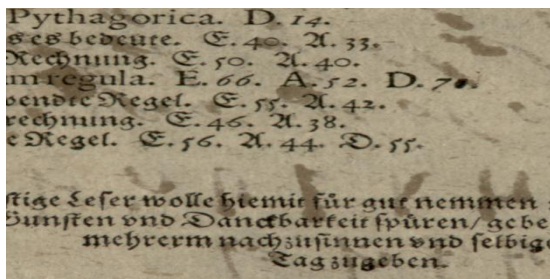 Pythagorica. D. 14.
s es bedeute. E. 40. A. 33.
Rechnung. E. 50. A. 40.
regula. E. 66. A. 52. D.
Regel. E. 55. A. 42.
rechnung. E. 46. A. 38.
e Regel. E. 56. A. 44. D. 55.
stige Leser wolle hiemit für gut nemmen
Gunsten vnd Danckbarkeit spüren/ gebe
mehrerm nachzusinnen vnd selbige
Tag zugeben.